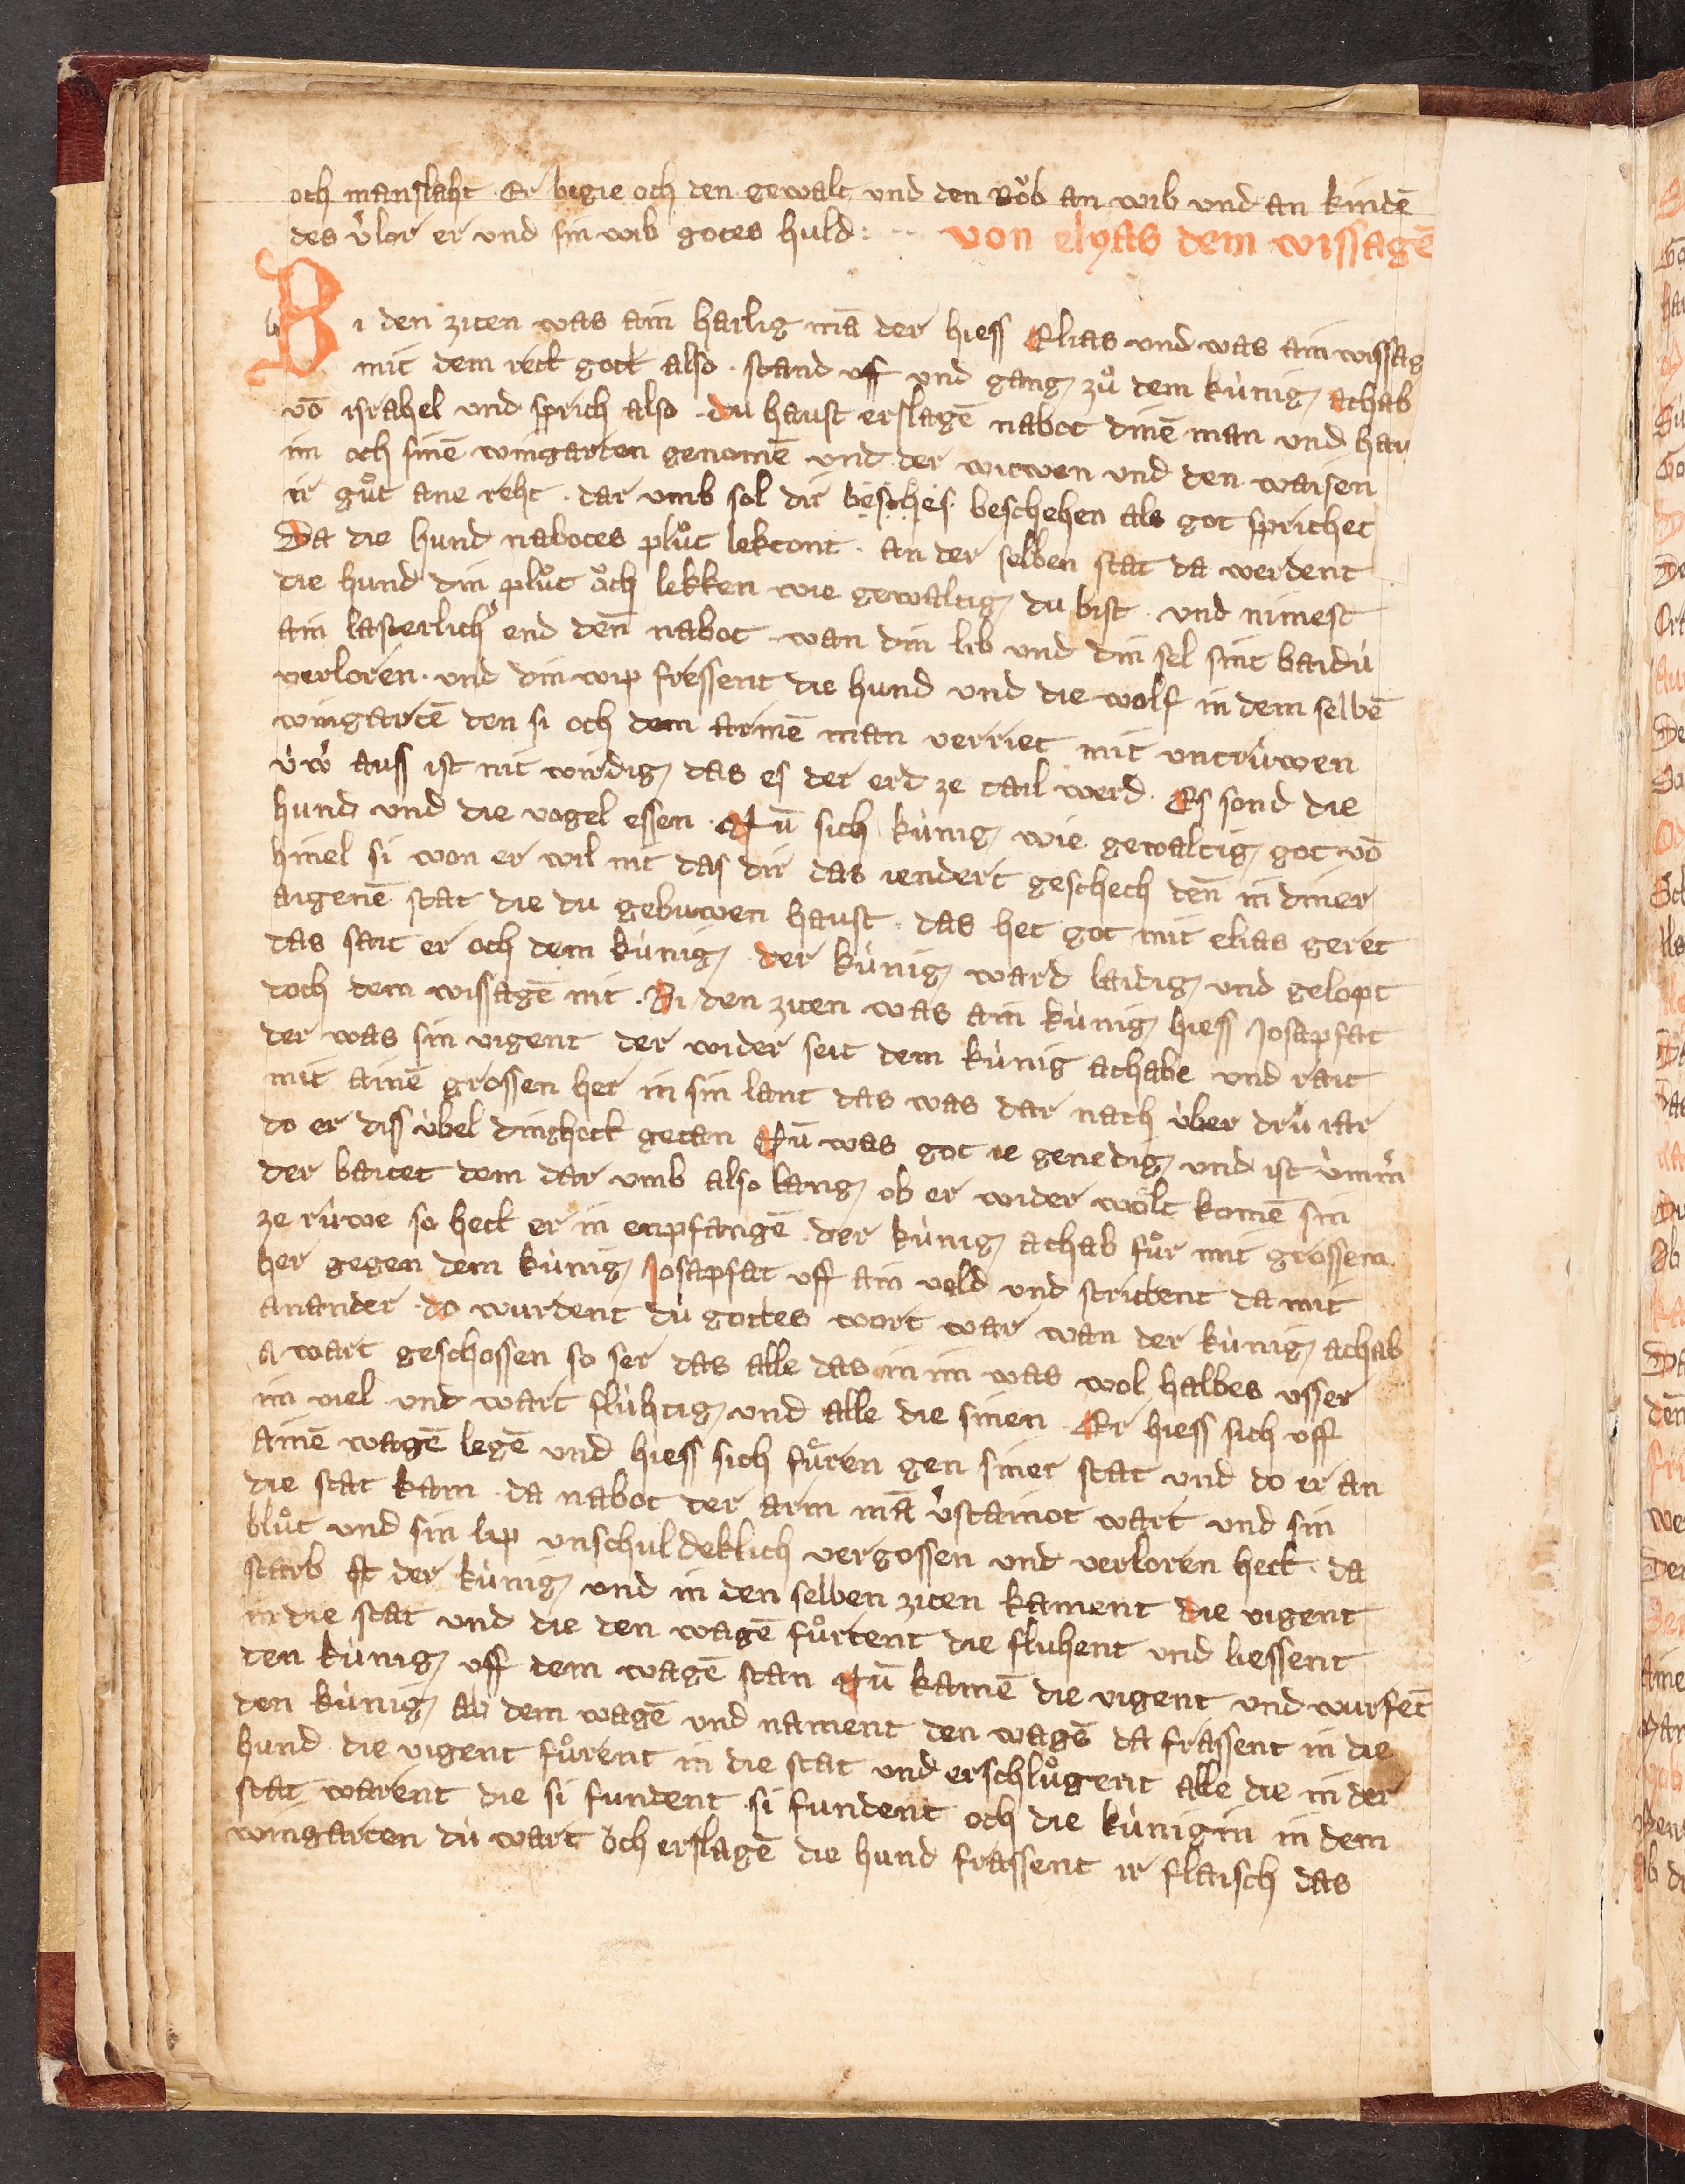 och manslaht Er begie och den gewalt und den Rob an wib und an kindē
des v̓lor er und sin wib gotes huld : ·· von elyas dem wissagē
Bi den ziten was ain hailig mā der hiess Elias und was ain wissag
mit dem rett gott also · stand uff und gang zuͦ dem kùnig achab
vō israhel und sprich also · du haust erslagē nabot dinē man und hau
im och sinē wingarten genomē und der witwen und den waisen
ir guͦt ane reht · dar umb sol dir besches beschehen als got sprichet
Da die hund nabotes pluͦt lektont · an der selben stat da werdent
die hund din pluͦt oͦch lekken wie gewaltig du bist · und nimest
ain lasterlich̓ end den̄ nabot · wan din lib und din sel sint baidù
verloren · und din wip fressent die hund und die wolf in dem selbē
wingartē den si och dem armē man verriet mit untrùwen
ùẁ auss ist nit wirdig das es der erd ze tail werd · Es sond die
hund und die vogel essen · Nū sich kùnig wie gewaltig got vō
himel si won er wil nit das dir das iendert geschech den̄ in diner
aigenē stat die du gebuwen haust · das het got mit elias geret
das sait er och dem kùnig · der kùnig ward laidig und gelopt
doch dem wissagē nit · Bi den ziten was ain kùnig hiess Josapfat
der was sin vigent der wider seit dem kùnig achabe und rait
mit ainē grossen her in sin lant das was dar nach ùber drù iar
do er diss ùbel ding hett getan Nū was got ie genedig und ist ùmm̓
der baitet dem dar umb also lang ob er wider wölt komē sin
ze rùwe so hett er in enpfangē · der kùnig achab fuͦr mit grossem
her gegen dem kùnig Josapfat uff ain veld und strittent da mit
anander · do wurdent dù gottes wort war wan der kùnig achab
a wart geschossen so ser das alle das in im was wol halbes usser
im viel und wart flùhtig und alle die sinen · Er hiess sich uff
ainē wagē legē und hiess sich fuͤren gen siner stat und do er an
die stat kam · da nabot der arm mā v̓stainot wart und sin
bluͦt und sin lip unschuldeklich vergossen und verloren hett · da
starb st der kùnig und in den selben ziten kament die vigent
in die stat und die den wagē fuͦrtent die fluhent und liessent
den kùnig uff dem wagē stan Nū kamē die vigent und wurfēt
den kùnig ab dem wagē und nament den wagē da frassent in die
hund · die vigent fuͦrent in die stat und erschluͦgent alle die in der
stat warent die si fundent · si fundent och die kùnigin in dem
wingarten dù wart öch erslagē die hund frassent ir flaisch das